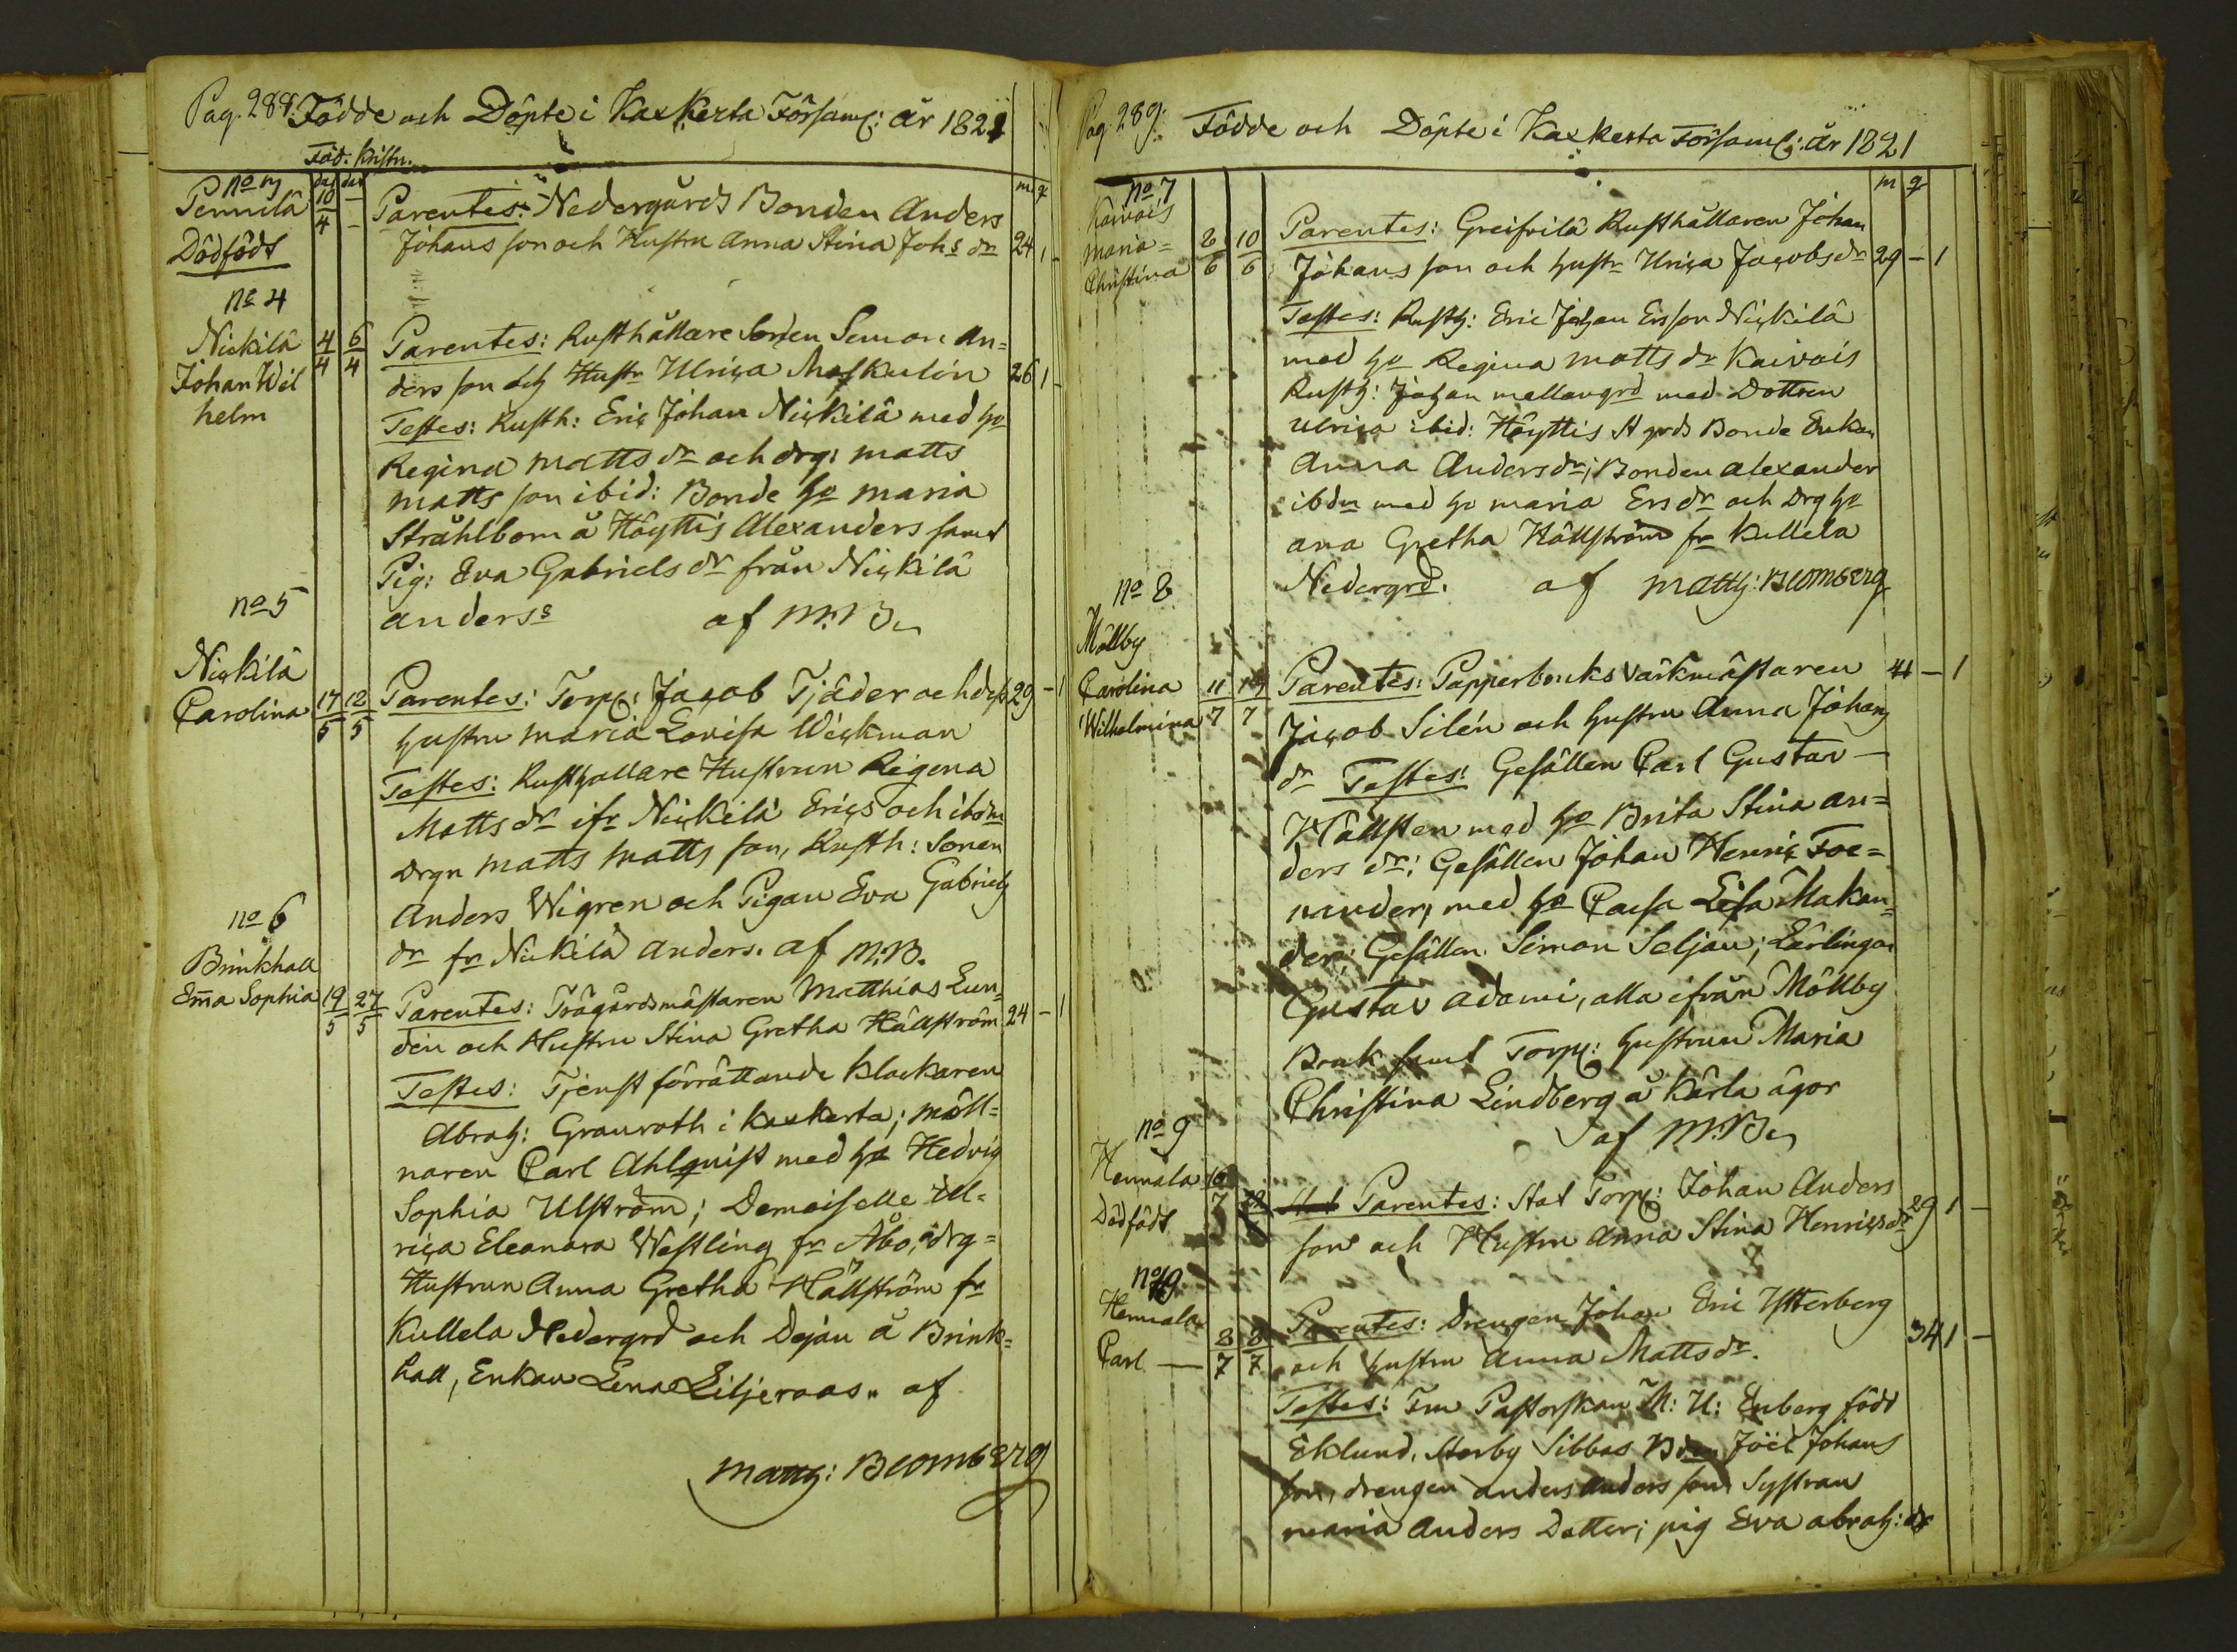 Pag. 288. Födde och Döpte i Kaxkerta Församl: år 1821
Föd. Kristn.
dag dat
m q
No 3
Pennilä 10/4 — Parentes: Nedergårds Bonden Anders
Dödfödt Johans son och Hustru Anna Stina Johs dr 24 1 -
No 4
Nickilä 4/4 6/4 Parentes: Rusthållare Sonen Simon An=
Johan Wil ders son och Hustr Ulrica Maskulin 26 1 -
helm
Testes: Rusth: Eric Johan Nickilä med ho
Regina Matts dr och drg: Matts
Matts son ibid: Bonde ho Maria
Stråhlbom å Höyttis Alexanders samt
Pig: Eva Gabriels dr från Nickilä
Anderss af M.B.
No 5
Nickilä
Carolina 17/5 12/5 Parentes: Torp: Jacob Tjäder och dess 29 - 1
hustru Maria Lovisa Wickman
Testes: Rusthållare Hustrun Regina
Matts dr ifr Nickilä Erics och ibdm
Drgn Matts Matts son, Rusth: Sonen
Anders Wigren och Pigan Eva Gabriels
dr fr Nickilä Anders. af M.B.
No 6
Brinkhall
Ema Sophia 19/5 27/5 Parentes: Trägårdsmästaren Matthias Lun=
dén och Hustru Stina Gretha Hällström 24 - 1
Testes: Tjenst förrättande Klockaren
Abrah: Granroth i Kaxkerta; Möll=
naren Carl Ahlquist med ho Hedvig
Sophia Ulström; Demoiselle Ul=
rica Eleanora Westling fr Åbo, drg=
Hustrun Anna Gretha Hällström fr
Kullela Nedergrd och Dejan å Brink=
hall, Enkan Lena Liljeroos. af
Matth: Blomberg
Pag 289. Födde och Döpte i Kaxkerta Församl: år 1821
m q
No 7
Kaivois
Maria= 8/6 10/6 Parentes: Greifvilä Rusthållaren Johan
Christina Johans son och hustr Ulrica Jacobs dr 29 - 1
Testes: Rusth: Eric Johan Ersson Nickilä
med ho Regina Matts dr Kaivois
Rusth: Johan Mellangrd med Dottren
Ulrica ibid: Höyttis A grds Bonde Enkan
Anna Anders dr; Bonden Alexander
ibdm med ho Maria Ers dr och Drg ho
Ana Gretha Hällström fr Kullela
Nedergrd. af Matth: Blomberg
No 8
Möllby
Carolina 11/7 14/7 Parentes: Papperbruks Värkmästaren 41 - 1
Wilhelmina Jacob Silén och hustru Anna Johans
dr Testes: Gesällen Carl Gustav —
Wällsten med ho Brita Stina An=
ders dr; Gesällen Johan Henric Foe=
nander, med ho Caisa Lisa Makan=
der; Gesällen Simon Seljan; Lärlingan
Gustav Adami, alla ifrån Möllby
Bruk samt Torp: hustrun Maria
Christina Lindberg å Kärla ägor
af M.B.
No 9
Hennala 16/7 Parentes: Stat Torp: Johan Anders
Dödfödt son och Hustru Anna Stina Henrics dr 29 1 -
No 10
Hennala
Carl — 8/7 8/7 Parentes: Drengen Johan Eric Ytterberg
och hustru Anna Matts dr. 34 1 -
Testes: Fru Pastorskan M: U: Enberg född
Eklund, Sterby Sibbas Bdn Joël Johans
son, drengen Anders Anders son Systran
Maria Anders Dotter; pig Eva Abrah: dr